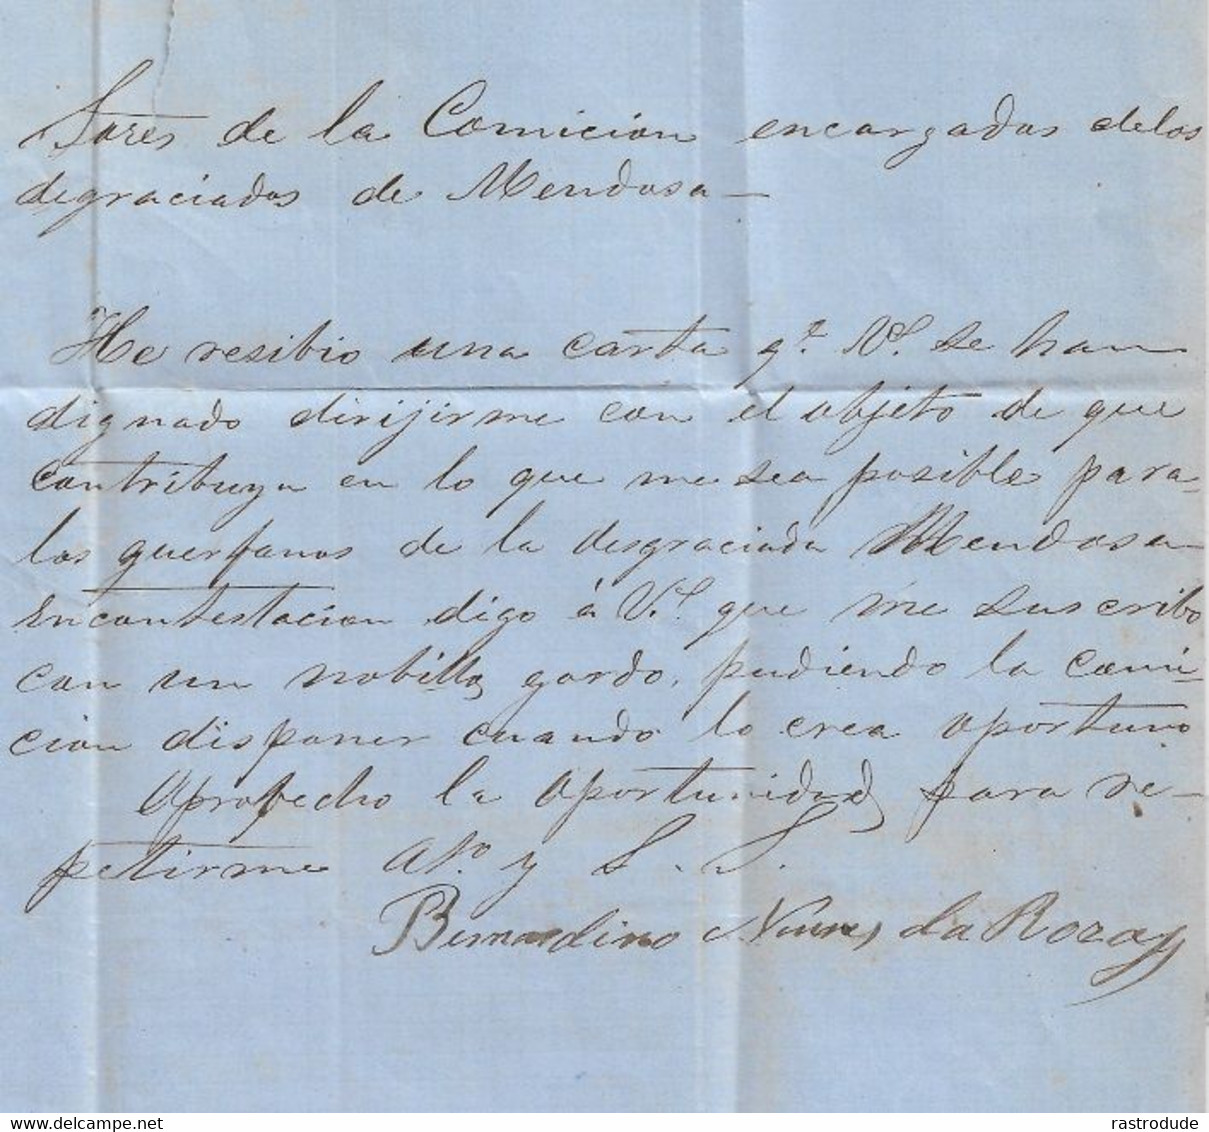 Sores de la Comicion encargados delos
degraciados de Mendosa —
He resibio una carta qe. Vs. se han
dignado dirijirme con el objeto de que
contribuya en lo que me sea posible para
los guerfanos de la desgraciada Mendosa
encontestacion digo á Vs. que me suscribo
con un nobillo gordo, pudiendo la comi-
cion disponer cuando lo crea oportuno
Aprobecho la oportunidad para re-
petirme Ato. y S. S.
Bernardino Nunes da Roza
www.delcampe.net rastrodude